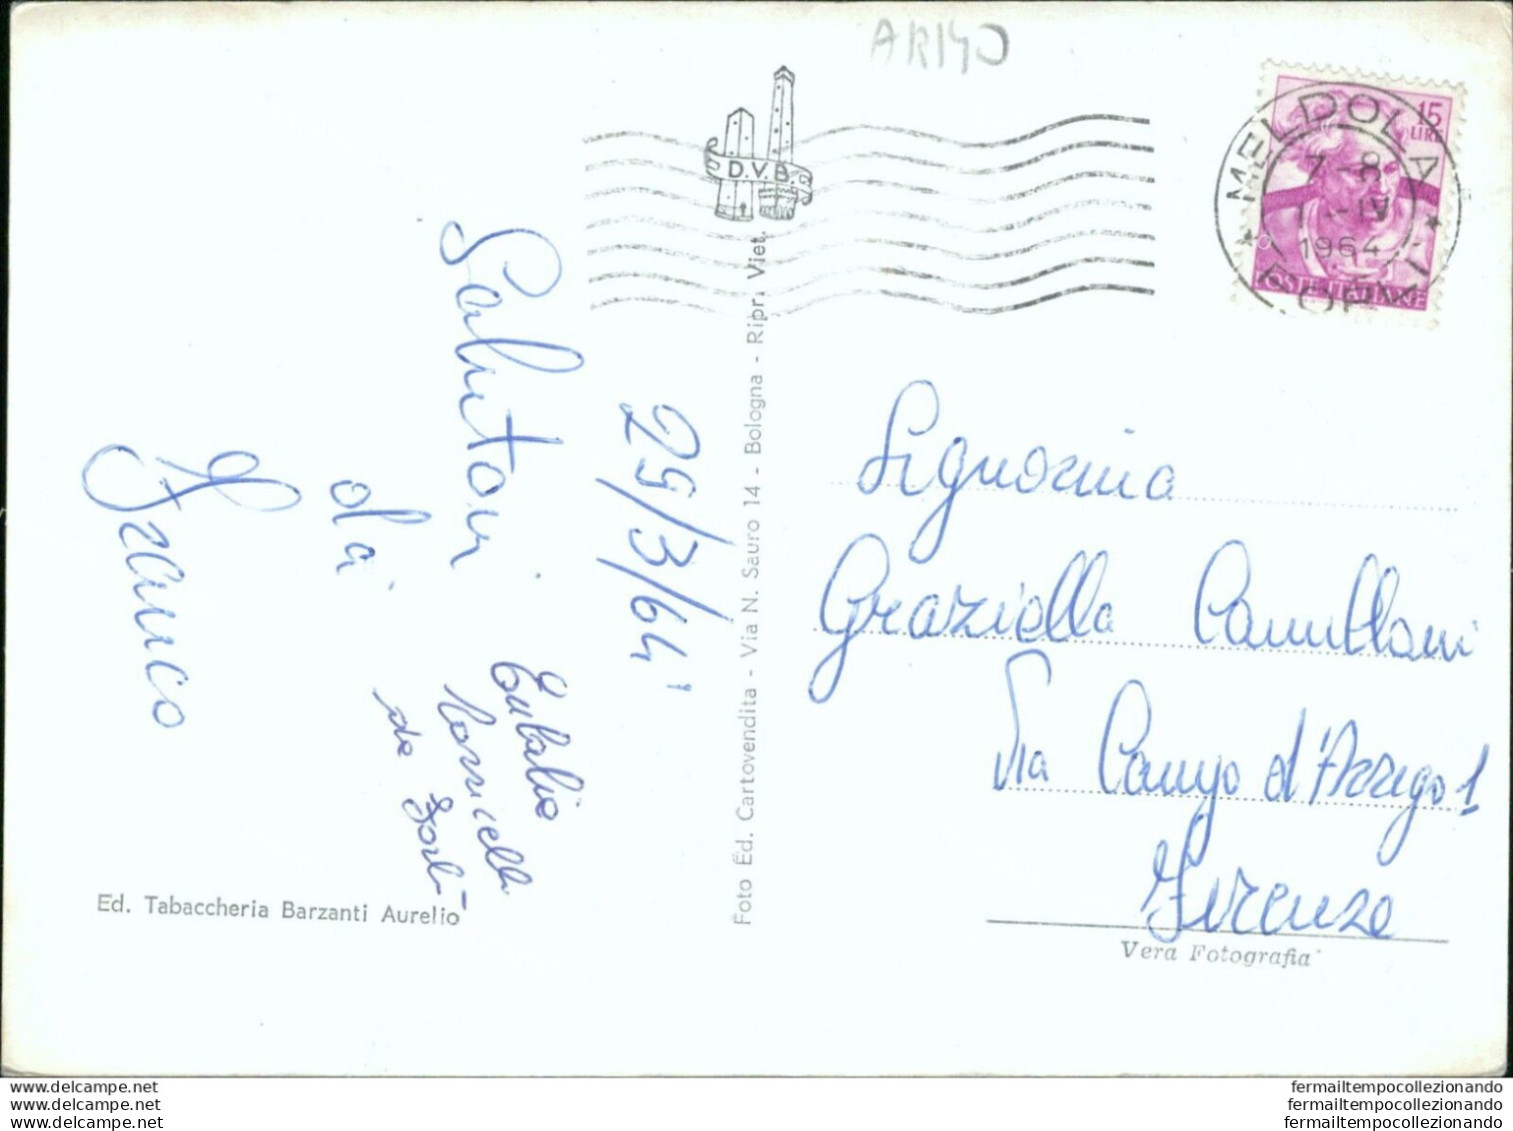 AR140
D.V.B.
15
LIRE
MELDOLA
7-8
1-IV
1964
FORLI
Saluti
da
Franco
29/3/64
Eulalia
Torricelli
da Forlì
Ed. Tabaccheria Barzanti Aurelio
Foto Ed. Cartovendita - Via N. Sauro 14 - Bologna - Ripr. Viet.
Signorina
Graziella
Via Campo d'Arrigo 1
Firenze
Vera Fotografia
www.delcampe.net
www.delcampe.net
www.delcampe.net
fermailtempocollezionando
fermailtempocollezionando
fermailtempocollezionando